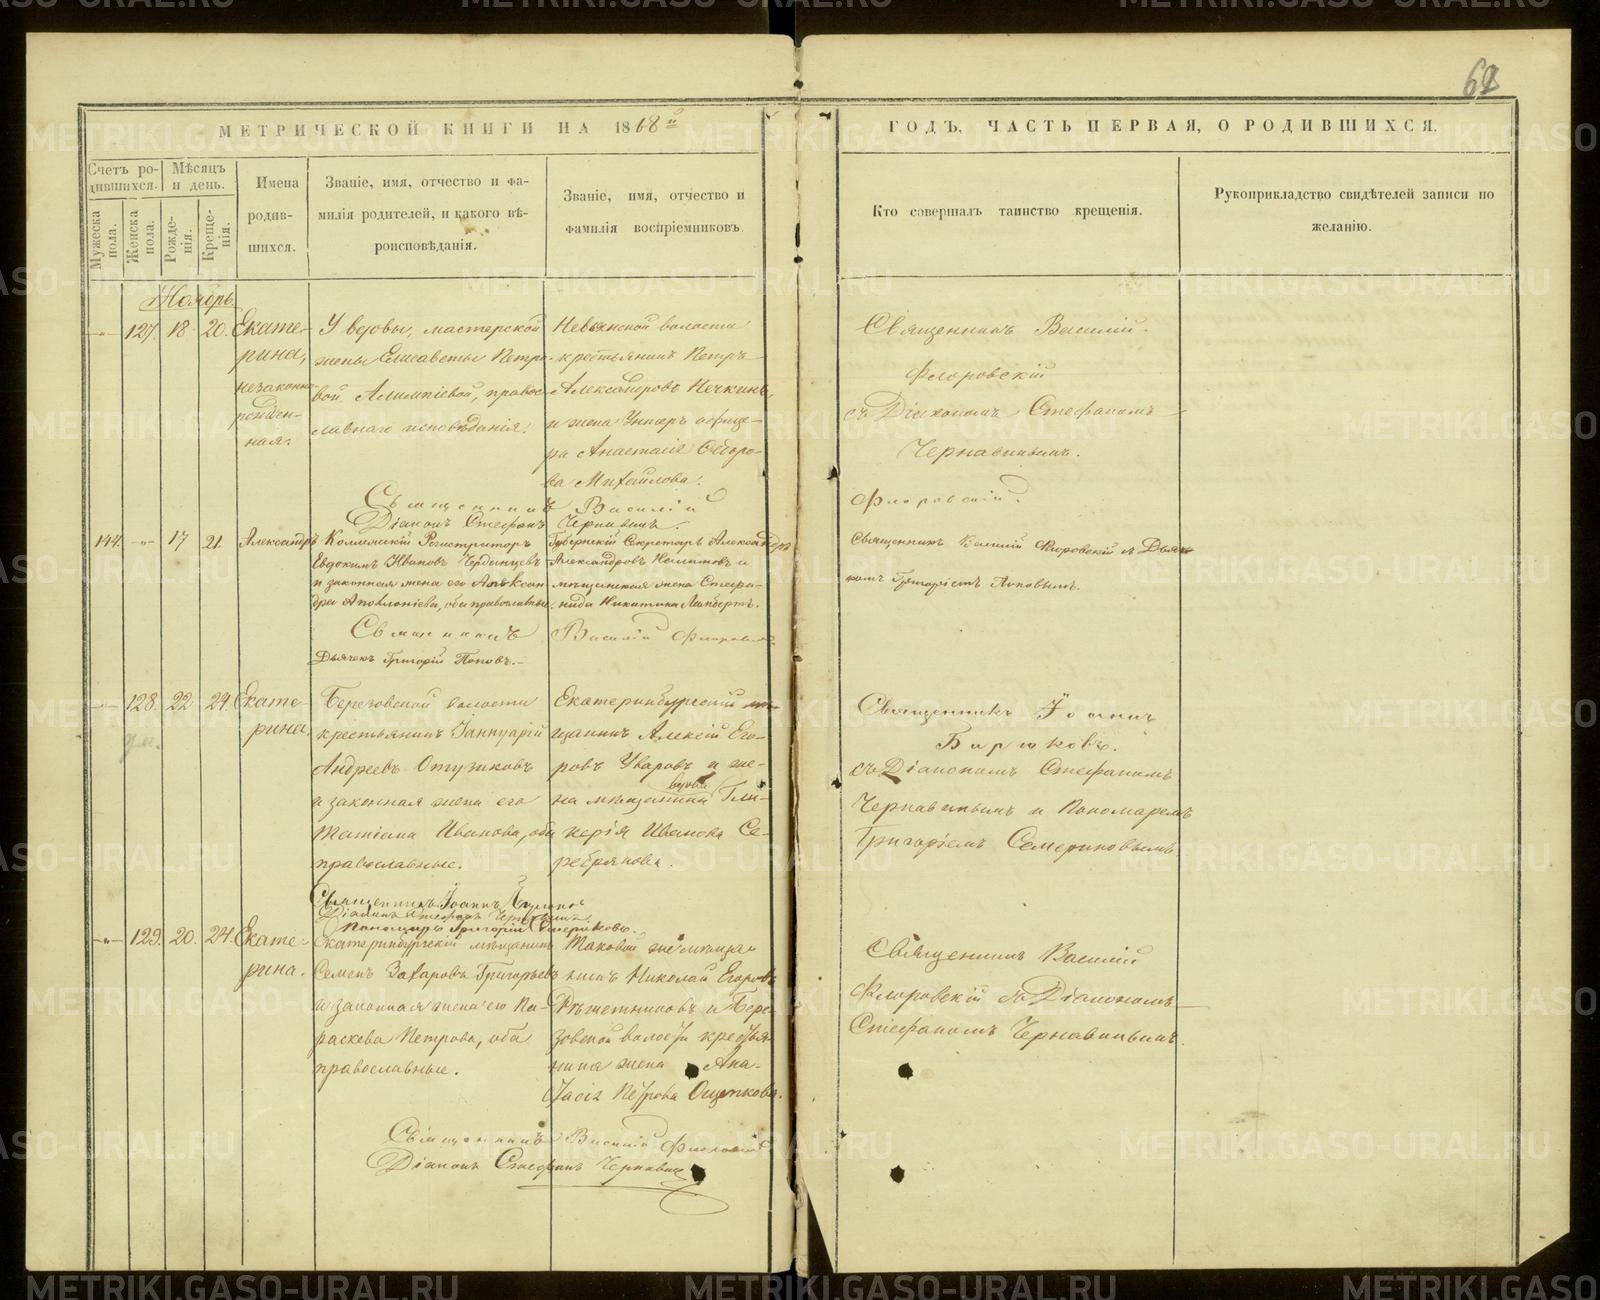 62
МЕТРИЧЕСКОЙ КНИГИ НА 1868й
ГОДЪ, ЧАСТЬ ПЕРВАЯ, О РОДИВШИХСЯ.
Счетъ родившихся.
Мѣсяцъ и день.
Мужеска пола.
Женска пола.
Рожденія.
Крещенія.
Имена родившихся.
Званіе, имя, отчество и фамилія родителей, и какого вѣроисповѣданія.
Званіе, имя, отчество и фамилія воспріемниковъ.
Кто совершалъ таинство крещенія.
Рукоприкладство свидѣтелей записи по желанію.
Ноябрь
127. 18 20.
Екате-
рина,
незаконно-
рожден-
ная.
У вдовы, мастерской
жены Елисаветы Петро-
вой Алимпіевой, правос-
лавнаго исповѣданія.
Невьянской волости
крестьянинъ Петръ
Александровъ Нечкинъ,
и жена Унтеръ офице-
ра Анастасія Ѳедоро-
ва Михайлова.
Священникъ Василій
Флоровскій
съ Діакономъ Стефаномъ
Чернавинымъ.
Священникъ Василій Флоровскій.
Діаконъ Стефанъ Чернавинъ.
144. 17 21.
Александръ
Коллежскій Регистраторъ
Евдокимъ Ивановъ Чердынцевъ
и законная жена его Алексан-
дра Аполлоніева, оба православные.
Губернскій Секретарь Александръ
Александровъ и
мѣщанская жена Стефа-
нида Никитина
Священникъ Василій Флоровскій съ Дьяч-
комъ Григоріемъ Поповымъ.
Священникъ Василій Флоровскій
Дьячекъ Григорій Поповъ.
128. 22 24.
Екате-
рина.
Березовской волости
крестьянинъ Іаннуарій
Андреевъ Отузиковъ
и законная жена его
Татіана Иванова, оба
православные.
Екатеринбургскій мѣ-
щанинъ Алексій Его-
ровъ Уваровъ и же-
на мѣщанина вдова Гли-
керія Иванова Се-
ребрякова.
Священникъ Іоаннъ
Бирюковъ.
съ Діакономъ Стефаномъ
Чернавинымъ и Пономаремъ
Григоріемъ Семериковымъ
Священникъ Іоаннъ Бирюковъ
Діаконъ Стефанъ Чернавинъ
Пономарь Григорій Семериковъ.
129. 20. 24.
Екате-
рина.
Екатеринбургскій мѣщанинъ
Семенъ Захаровъ Григорьевъ
и законная жена его Па-
раскева Петрова, оба
православные.
Таковой же мѣща-
нинъ Николай Егоровъ
Рѣшетниковъ и Бере-
зовской волости крестья-
нина жена Ана-
стасія Петрова Ощепкова.
Священникъ Василій
Флоровскій съ Діакономъ
Стефаномъ Чернавинымъ.
Священникъ Василій Флоровскій
Діаконъ Стефанъ Чернавинъ
METRIKI.GASO-URAL.RU